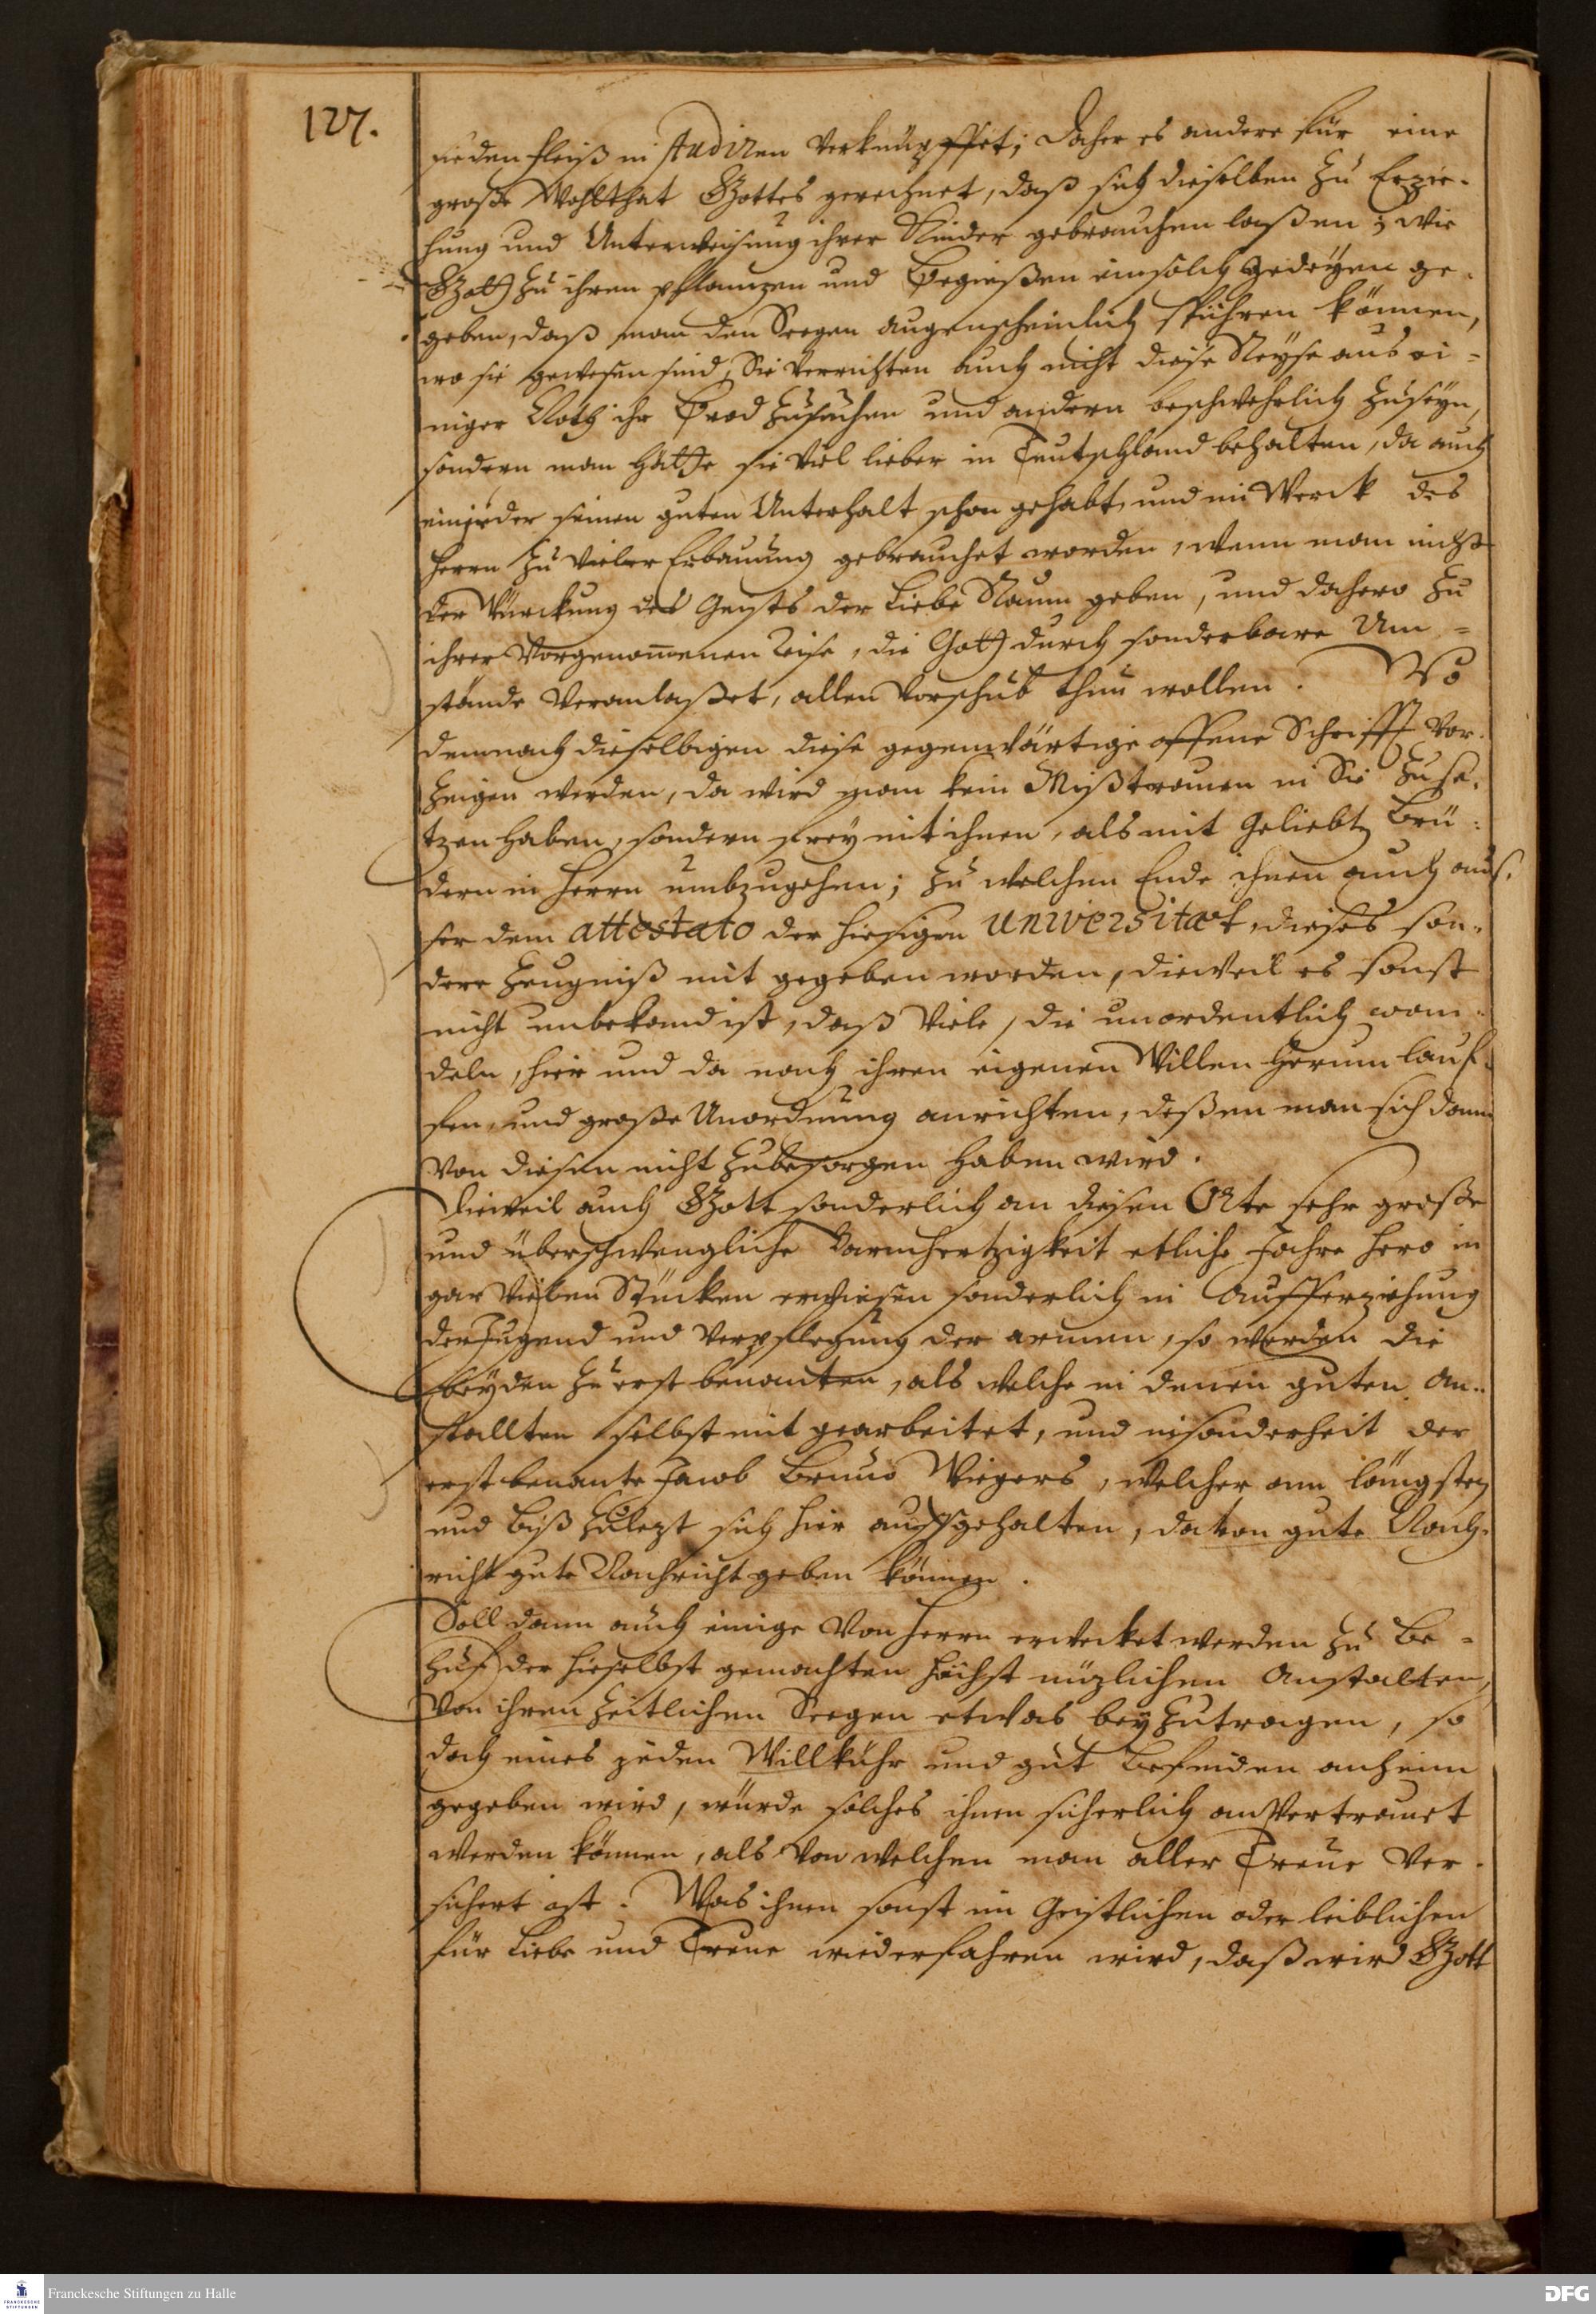 127.
sie den fleiß in studiren verknüpffet; daher es andere für eine
große Wohlthat Gottes gerechnet, daß sich dieselben zu Erzie-
hung und Unterweisung ihrer Kinder gebrauchen laßen; wie
Gott zu ihren pflantzen und begießen ein solch gedeyen ge-
geben, daß man den Seegen augenscheinlich spühren können,
wo sie gewesen sind, Sie verrichten auch nicht diese Reyse aus ei-
niger Noth ihr Brod zusuchen und andern beschwehrlich zuseyn,
sondern man hätte sie viel lieber in Teutschland behalten, da auch
einjeder seinen guten Unterhalt schon gehabt, und im Werck des
Herrn zu vieler Erbauung gebrauchet worden, wenn man nicht
der Würckung des Geists der Liebe Raum geben, und dahero zu
ihrer vorgenom̄enen reise, die Gott durch sonderbare Um-
stände veranlaßet, allen Vorschub thun wollen. Wo
demnach dieselbigen diese gegenwärtige offene Schrifft vor-
zeigen werden, da wird man kein Mißtrauen in Sie zuse-
tzen haben, sondern frey mit ihnen, als mit Geliebten Brü-
dern in Herrn umbzugehen; zu welchen Ende ihnen auch aus-
ser dem attestato der hiesigen universitæt, dieses son-
dere Zeugniß mit gegeben worden, dieweil es sonst
nicht unbekand ist, daß viele, die unordentlich wan-
deln, hier und da nach ihren eigenen Willen herum lauf-
fen, und große Unordnung anrichten, deßen man sich dann
von diesen nicht zubesorgen haben wird.
Dieweil auch Gott sonderlich an diesen Orte sehr große
und überschwengliche Barmhertzigkeit etliche Jahre hero in
gar vielen Stücken erwiesen sonderlich in Aufferziehung
der Jugend und verpflegung der armen, so werden die
beyden zu erst benanten, als welche in denen guten An-
stallten selbst mit gearbeitet, und insonderheit der
erst benante Jacob Bruno Wigers, welcher am längsten
und biß zulezt sich hier auffgehalten, davon gute Nach-
richt gute Nachricht geben können.
Soll dann auch einige von Herrn erwecket werden zu Be-
huf der hieselbst gemachten höchst nüzlichen Anstalten,
von ihren zeitlichen Seegen etwas beyzutragen, so
doch eines jeden Willkühr und gut befinden anheim
gegeben wird, würde solches ihnen sicherlich anvertrauet
werden können, als von welchen man aller Treue ver-
sichert ist. Was ihnen sonst im Geistlichen oder leiblichen
für Liebe und Treue wiederfahren wird, daß wird Gott
FRANCKESCHE STIFTUNGEN
Franckesche Stiftungen zu Halle
DFG